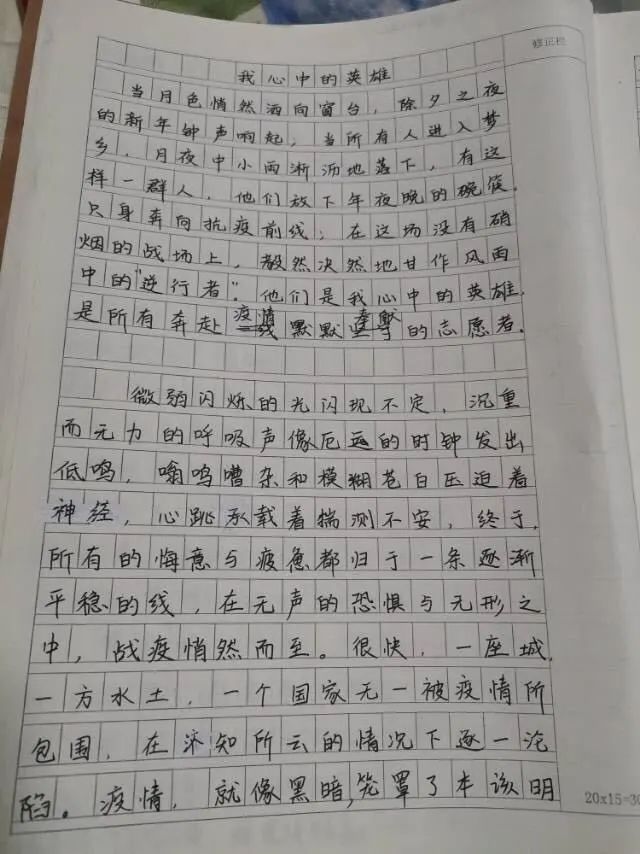 修正栏
我心中的英雄
当月色悄然洒向窗台，除夕之夜
的新年钟声响起，当所有人进入梦
乡，月夜中小雨淅沥地落下，有这
样一群人，他们放下年夜晚的碗筷，
只身奔向抗疫前线，在这场没有硝
烟的战场上，毅然决然地甘作风雨
中的"逆行者"。他们是我心中的英雄，
是所有奔赴疫情默默奉献的志愿者。
微弱闪烁的光闪现不定，沉重
而无力的呼吸声像厄运的时钟发出
低鸣，嗡鸣嘈杂和模糊苍白压迫着
神经，心跳承载着揣测不安，终于，
所有的悔意与疲惫都归于一条逐渐
平稳的线，在无声的恐惧与无形之
中，战疫悄然而至。很快，一座城，
一方水土，一个国家无一被疫情所
包围，在不知所云的情况下逐一沦
陷。疫情，就像黑暗，笼罩了本该明
20x15=30